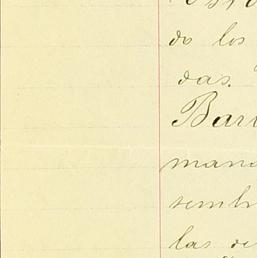 do los
das.
Bar
mana
sembr
las de